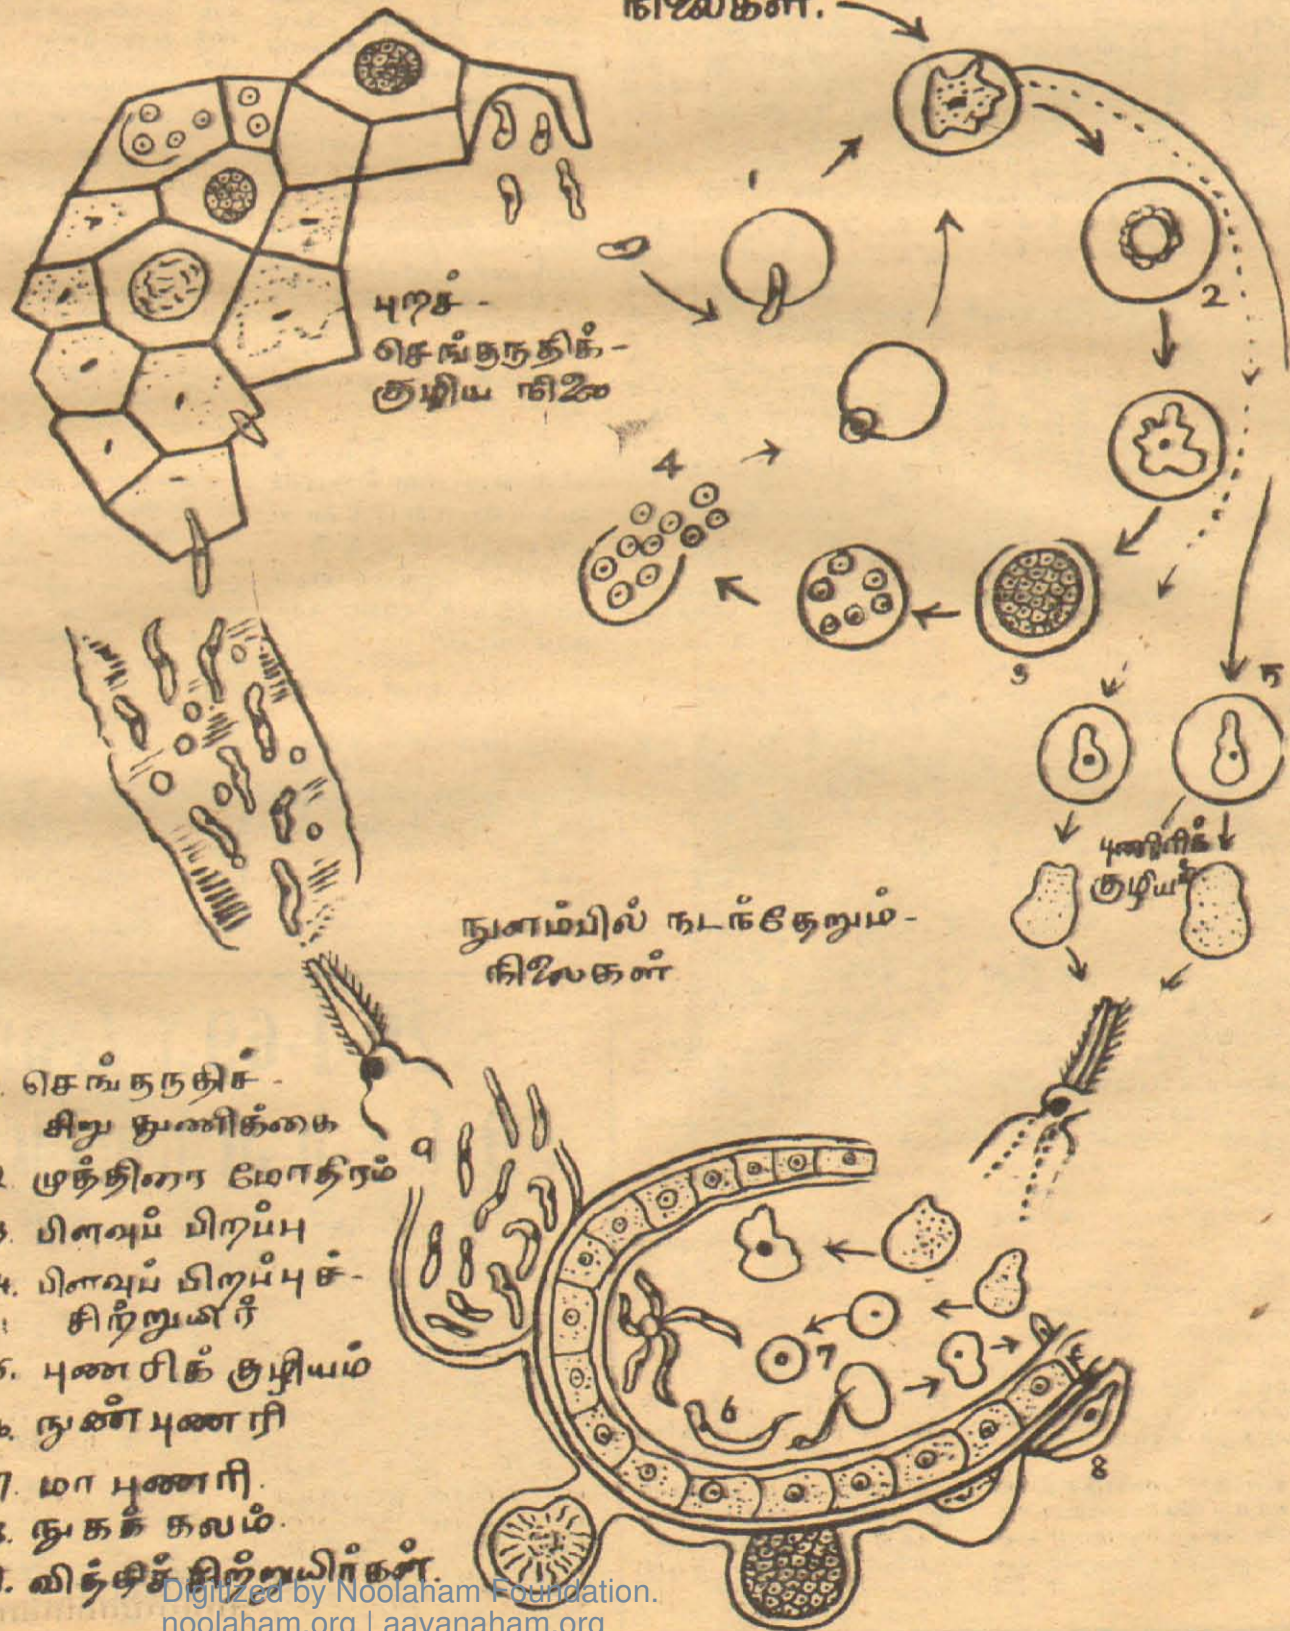 நிலைகள்.
1
2
புறச் -
செங்குருதிக் -
குழிய நிலை
4
3
5
புணரிக்
குழியம்
நுளம்பில் நடந்தேறும் -
நிலைகள்
. செங்குருதிச் -
சிறு துணிக்கை
2. முத்திரை மோதிரம்
3. பிளவுப் பிறப்பு
4. பிளவுப் பிறப்புச் -
சிற்றுயிர்
5. புணரிக் குழியம்
6. நுண்புணரி
7. மா புணரி.
8. நுகக் கலம்.
9. வித்திச் சிற்றுயிர்கள்.
9
7
6
8
Digitized by Noolaham Foundation.
noolaham.org | aavanaham.org